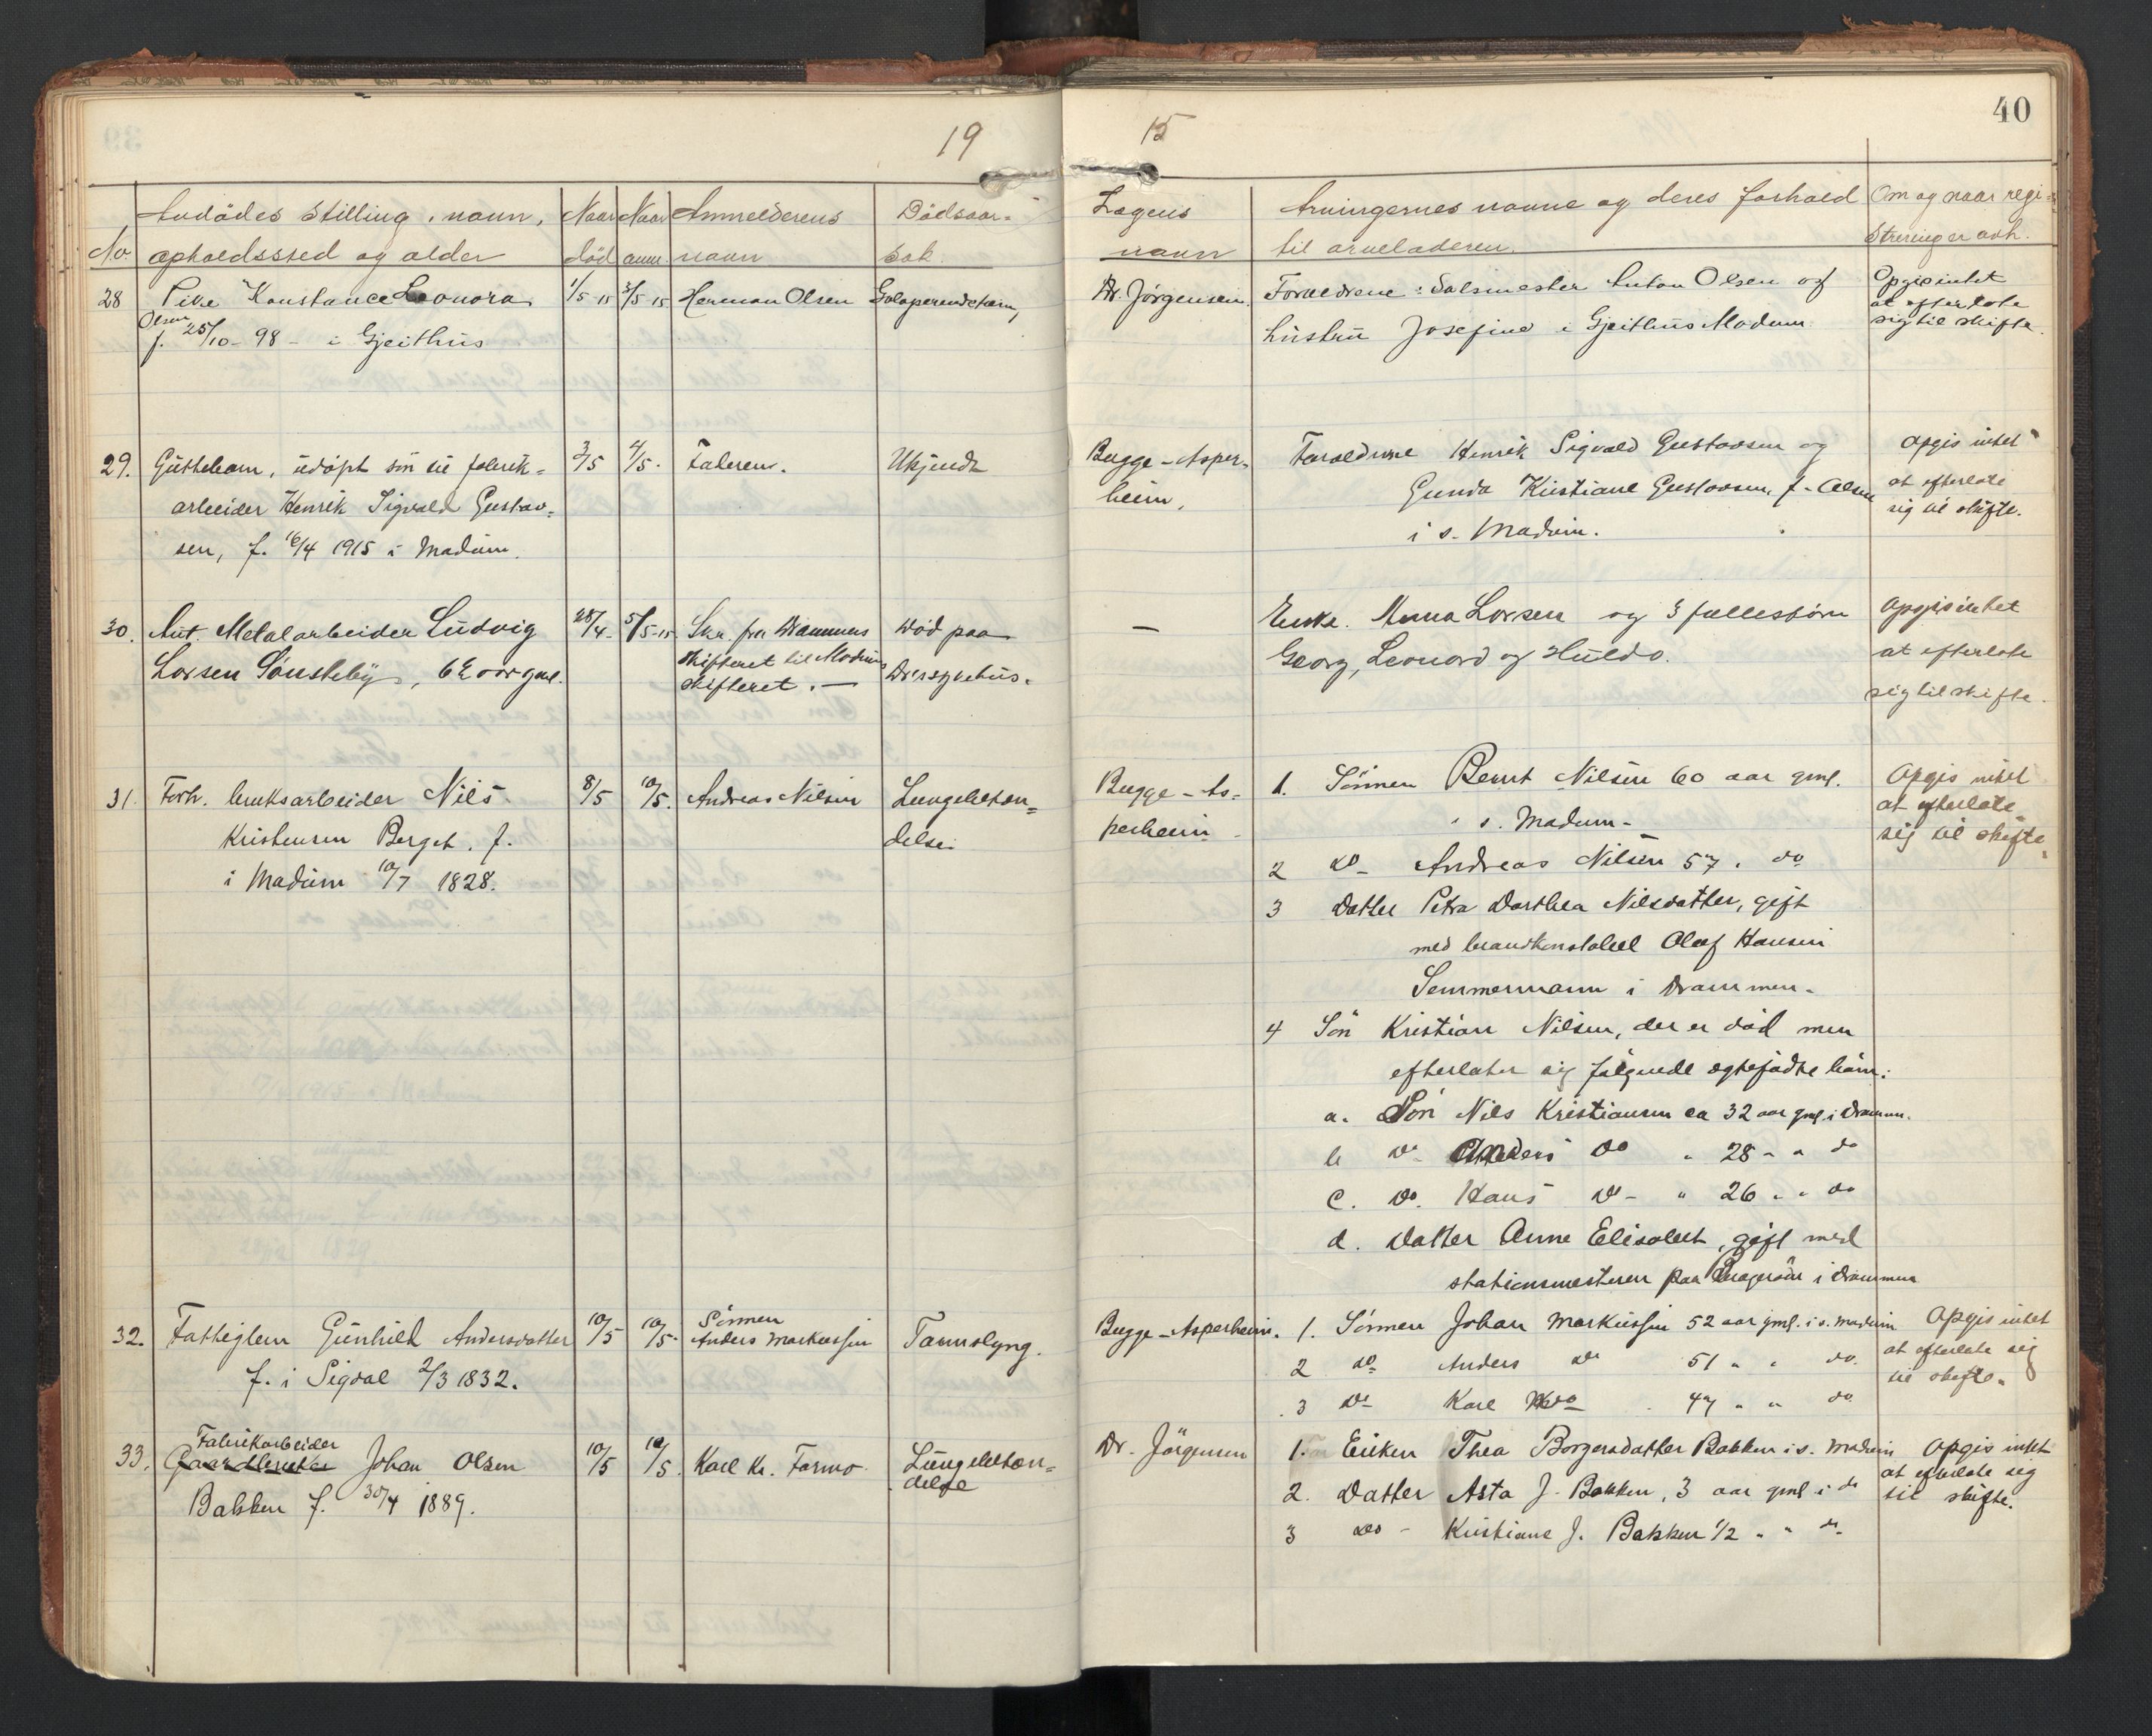 19 15 40
No
Avdödes stilling, navn,
opholdssted og alder
Naar
död
Naar
anm.
Anmelderens
navn
Dödsaar-
sak.
Lægens
navn
Arvingernes navne og deres forhold
til arveladeren.
Om og naar regi-
strering er avh.
28 Pike Konstance Leonora
Olsen
f. 25/10-98 - i Gjeithus
1/5 15 3/5 15 Herman Olsen Galoperende tæring
Dr. Jörgensen. Forældrene: Salsmester Anton Olsen og
hustru Josefine i Gjeithus Modum.
Opgis intet
at efterlate
sig til skifte.
29. Guttebarn, udöpt sön til fabrik-
arbeider Henrik Sigvald Gustav-
sen, f. 16/4 1915 i Modum.
3/5 4/5. Faderen. Ukjendt
Bugge-Asper-
heim.
Foreldrene Henrik Sigvald Gustavsen og
Gunda Kristiane Gustavsen, f. Olsen
i s. Modum.
Opgis intet
at efterlate
sig til skifte.
30. Aut. Metalarbeider Ludvig
Larsen Sønsteby, 62 aar gml.
28/4. 5/5-15 Skr. fra Drammens
skifteret til Modums
skifteret. —
Död paa
Dr.s sykehus.
— Enke. Anna Larsen og 3 fællesbörn
Georg, Leonard og Huldo.
Opgis intet
at efterlate
sig til skifte.
31. Forh. bruksarbeider Nils
Kristensen Berget, f.
i Modum 10/7 1828.
8/5 10/5. Andreas Nilsen Lungebetæn-
delse.
Bugge-As-
perheim
1. Sönnen Bernt Nilsen 60 aar gml.
i s. Modum-
2 do- Andreas Nilsen 57. do
3 Datter Petra Dorthea Nilsdatter, gift
med brandkonstabel Olaf Hansen
Semmermann i Drammen.
4 Sön Kristian Nilsen, der er död men
efterlater sig fölgende egtefödte barn:
a. Sön Nils Kristiansen ca 32 aar gml. i Dramm.
b do Anders do " 28 - " do
c. do. Hans do - " 26 " " do
d. Datter Anne Elisabet, gift med
stationsmesteren paa Bragerøen i Drammen
Opgis intet
at efterlate
sig til skifte.
32. Fattiglem Gunhild Andersdatter
f. i Sigdal 2/3 1832.
10/5 10/5. Sönnen
Anders Markussen
Tarmslyng.
Bugge-Asperheim. 1. Sönnen Johan Markussen 52 aar gml. i s. Modum
2 do Anders do 51 " " do.
3 do Karl do 47 " " do
Opgis intet
at efterlate sig
til skifte.
33. Fabrikarbeider
Johan Olsen
Bakken f. 30/4 1889.
10/5 10/5. Karl Kr. Formo Lungebetæn-
delse
Dr. Jörgensen 1. Enken Thea Borgersdatter Bakken i s. Modum
2. Datter Asta J. Bakken, 3 aar gml i do
3 do - Kristiane J. Bakken 1/2 " " do
Opgis intet
at efterlate sig
til skifte.